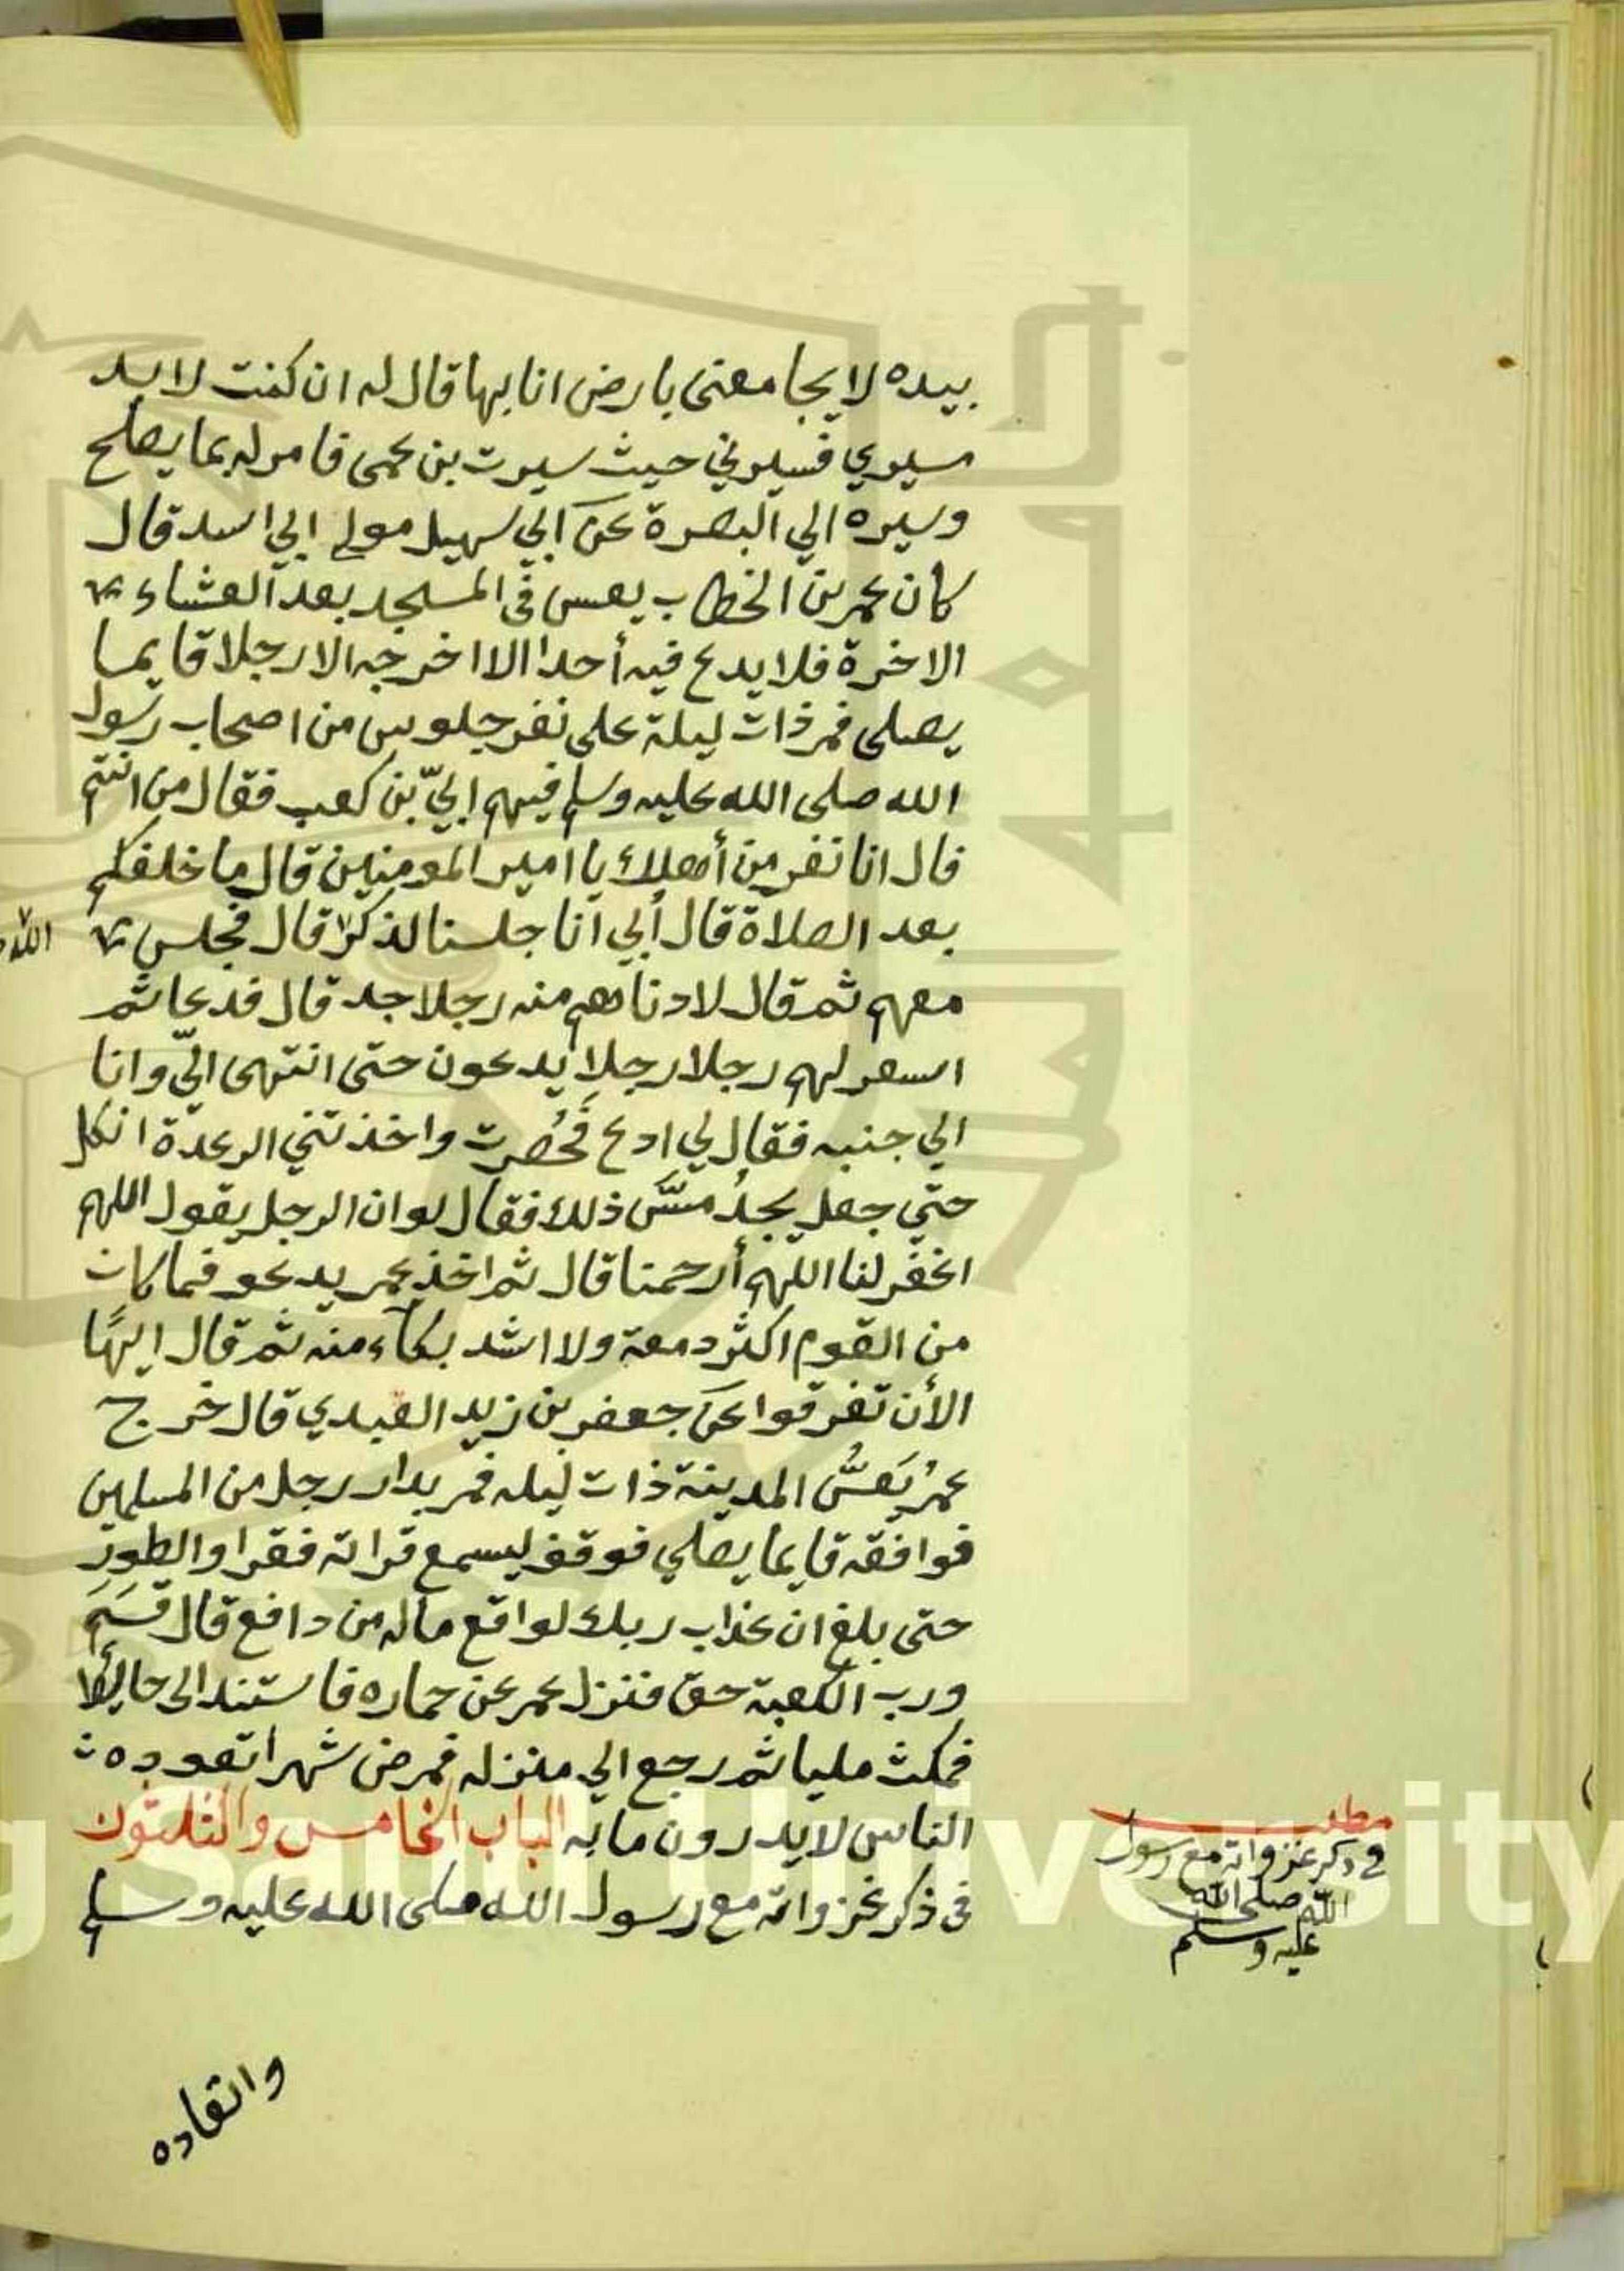 بيده لا يجامعنى بارض انا بها قال له ان كنت لا بد
مسيري فسيرني حيث سيرت بن عمى فامر له بما يصلح
وسيره الي البصرة عن ابي سهيل مولى ابي اسد قال
كان عمر بن الخطاب يعس فى المسجد بعد العشاء
الاخرة فلا يدع فيه أحدا الا اخرجه الا رجلا قايما
يصلى فمر ذات ليلة على نفر جلوس من اصحاب رسول
الله صلى الله عليه وسلم فيهم ابيّ بن كعب فقال من انتم
قال انا نفر من أهلك يا امير المومنين قال ما خلفكم
بعد الصلاة قال أبي انا جلسنا لذكر قال فجلس
معهم ثم قال لادناهم منه رجلا جد قال فدعا ثم
اسعر لهم رجلا رجلا يدعون حتى انتهى اليّ وانا
الي جنبه فقال لي ادع فَحُصرت واخذتني الرعدة انكل
حتي جعل يجدُ مسَّ ذلك فقال لو ان الرجل يقول اللهم
اغفر لنا اللهم أرحمنا قال ثم اخذ عمر يدعو فما كان
من القوم اكثر دمعة ولا اشد بكاء منه ثم قال ايهًا
الأن تفرقوا عن جعفر بن زيد العبدي قال خرج
عمرُ يَعسُّ المدينة ذات ليله فمر بدار رجل من المسلمين
فوافقه قايما يصلي فوقف ليسمع قراته فقرا والطور
حتى بلغ ان عذاب ربك لواقع ماله من دافع قال قسَمَ
ورب الكعبة حق فنزل عمر عن حماره فاستند الى حايط
فمكث مليا ثم رجع الي منزله فمرض شهرا تعوده
الناس لا يدرون ما به الباب الخامس والثلثون
فى ذكر غزواته مع رسول الله صلى الله عليه وسلم
مطلب
في ذكر غزواته مع رسول
الله صلى الله
عليه وسلم
وانقاده